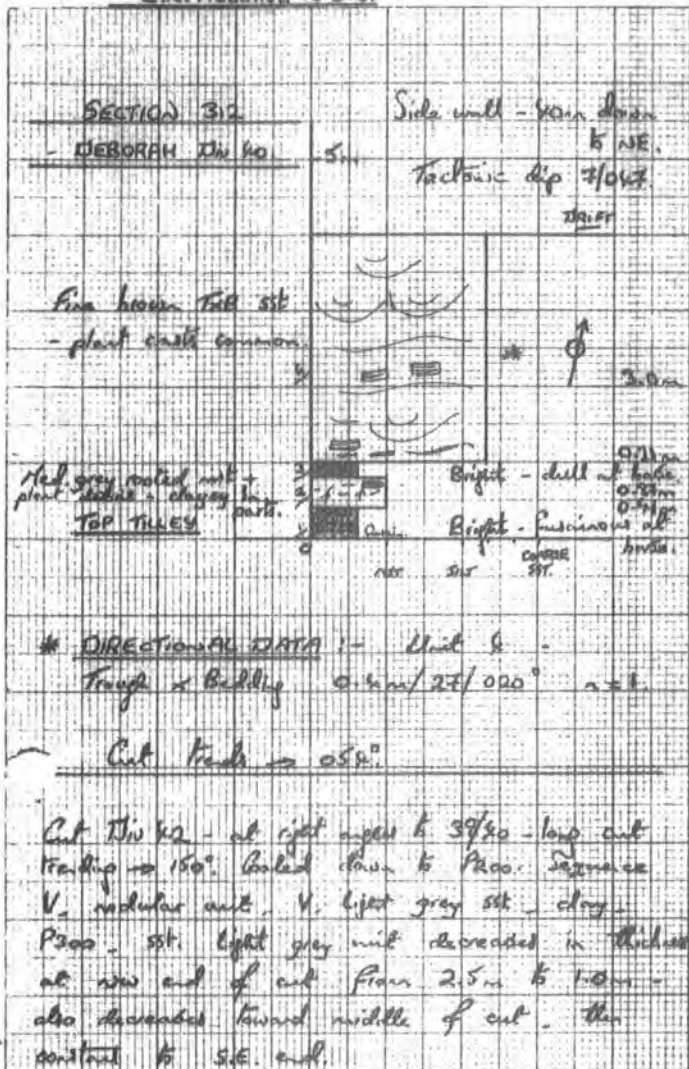 SECTION 312
- DEBORAH DIV 40
Side wall - 40m down
to NE.
Tectonic dip 7/047.
DRIFT
5m
Fine brown TXB sst
- plant casts common.
*
4
3.0m
3
Med. grey rooted mst +
plant debris - clayey in
parts.
2
Bright - dull at base.
TOP TILLEY
1
Bright - fusainous at
base.
0
MST SILT COARSE
SST.
* DIRECTIONAL DATA :- Unit 4 -
Trough x Bedding 0.4m/27/020° n=1.
Cut trends → 054°.
Cut Div 42 - at right angles to 39/40 - long cut
trending → 150°. Coaled down to P200. Sequence
V. nodular unit. V. light grey sst - clay -
P300 - sst. light grey unit decreases in thickness
at NW end of cut from 2.5m to 1.0m -
also decreases toward middle of cut - then
constant to S.E. end.